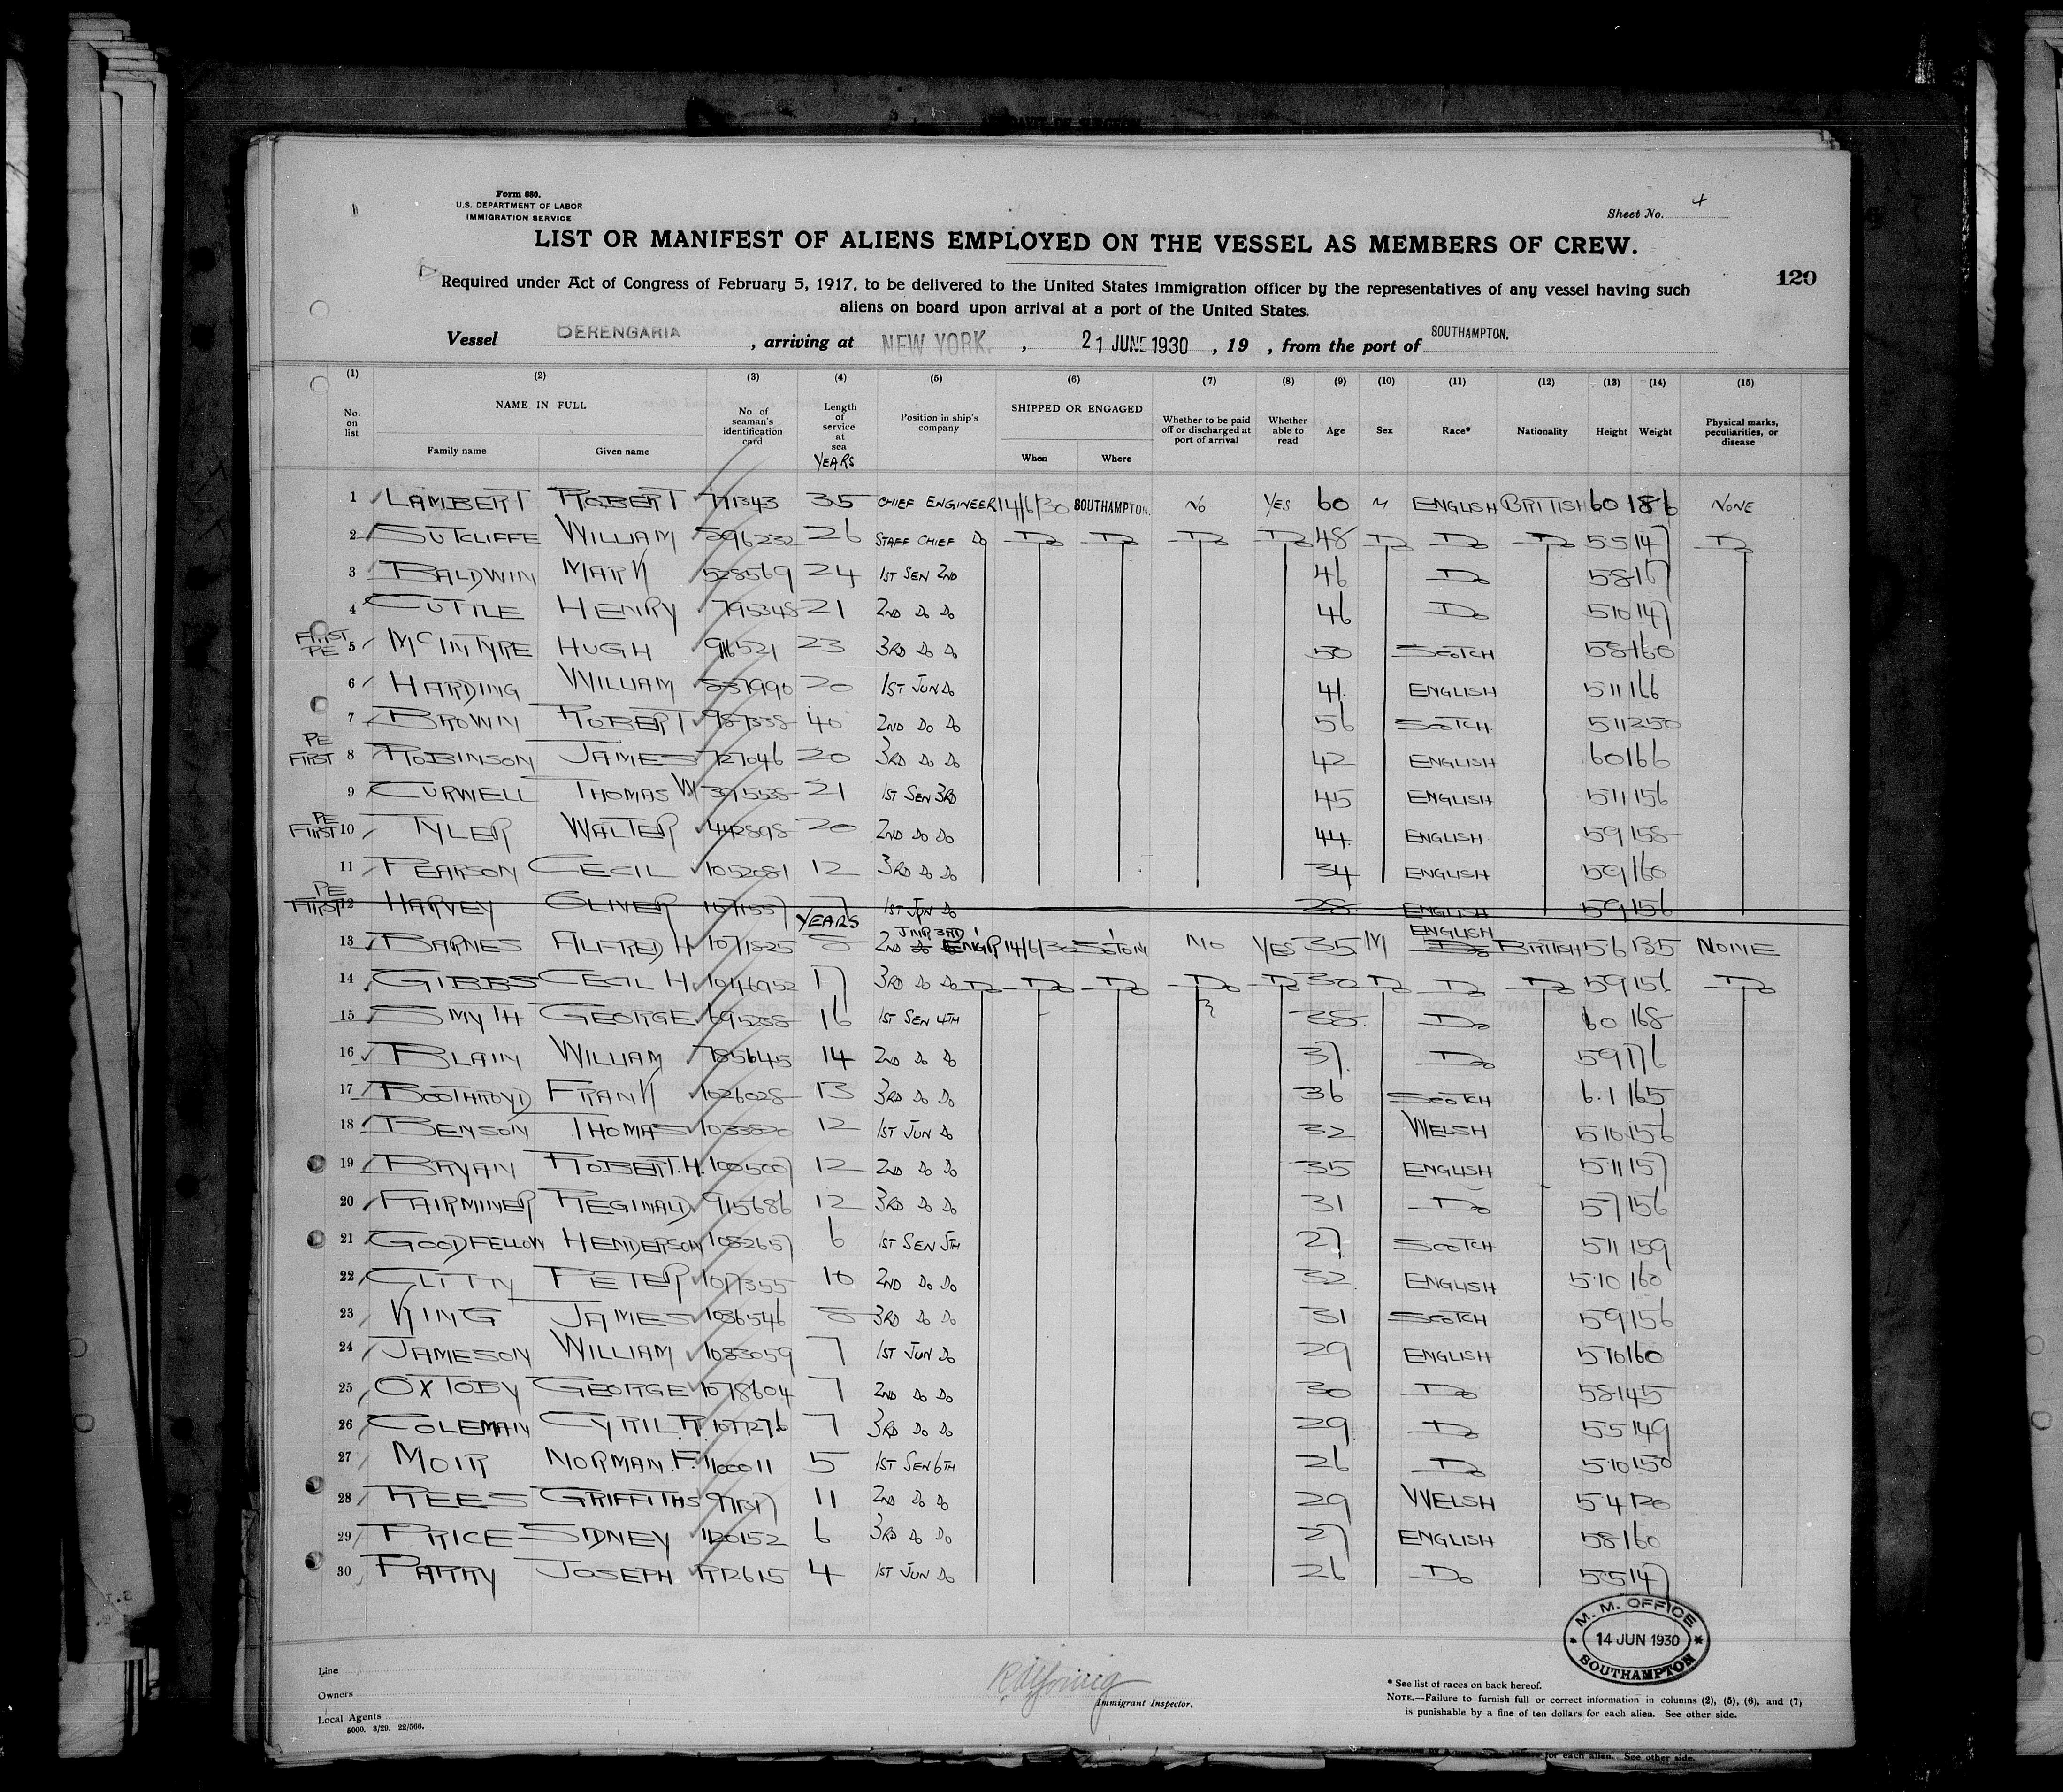 Form 680.
U.S. DEPARTMENT OF LABOR
IMMIGRATION SERVICE
Sheet No. 4
LIST OR MANIFEST OF ALIENS EMPLOYED ON THE VESSEL AS MEMBERS OF CREW.
120
Required under Act of Congress of February 5, 1917, to be delivered to the United States immigration officer by the representatives of any vessel having such
aliens on board upon arrival at a port of the United States.
Vessel BERENGARIA , arriving at NEW YORK. , 21 JUNE 1930 , 19 , from the port of SOUTHAMPTON.
(1) (2) (3) (4) (5) (6) (7) (8) (9) (10) (11) (12) (13) (14) (15)
No. on list NAME IN FULL Family name Given name No. of seaman's identification card Length of service at sea YEARS Position in ship's company SHIPPED OR ENGAGED When Where Whether to be paid off or discharged at port of arrival Whether able to read Age Sex Race* Nationality Height Weight Physical marks, peculiarities, or disease
1 LAMBERT ROBERT 771343 35 CHIEF ENGINEER 14/6/30 SOUTHAMPTON. No YES 60 M ENGLISH BRITISH 60 186 NONE
2 SUTCLIFFE WILLIAM 596232 26 STAFF CHIEF Do Do Do Do Do 48 Do Do Do 55 147 Do
3 BALDWIN MARK 528569 24 1ST SEN 2ND 46 Do 58 167
4 CUTTLE HENRY 795348 21 2ND Do Do 46 Do 510 147
FIRST PE 5 McINTYRE HUGH 916521 23 3RD Do Do 50 SCOTCH 58 160
6 HARDING WILLIAM 837990 20 1ST JUN Do 41 ENGLISH 511 166
7 BROWN ROBERT 987338 40 2ND Do Do 56 SCOTCH 511 250
PE FIRST 8 ROBINSON JAMES 727046 20 3RD Do Do 42 ENGLISH 60 166
9 CURWELL THOMAS W 391558 21 1ST SEN 3RD 45 ENGLISH 511 156
PE FIRST 10 TYLER WALTER 442898 20 2ND Do Do 44 ENGLISH 59 158
11 PEARSON CECIL 1052081 12 3RD Do Do 34 ENGLISH 59 160
PE FIRST 12 HARVEY OLIVER 7 1ST JUN Do 28 ENGLISH 59 156
YEARS
13 BARNES ALFRED H 1071825 8 2ND JNR 3RD ENGR 14/6/30 S'TON NO YES 35 M ENGLISH BRITISH 5.6 135 NONE
14 GIBBS CECIL H. 1046952 17 3RD Do Do Do Do Do Do Do 30 Do Do Do 59 156 Do
15 SMYTH GEORGE 695238 16 1ST SEN 4TH 38 Do 60 168
16 BLAIN WILLIAM 785645 14 2ND Do Do 37 Do 59 176
17 BOOTHROYD FRANK 1026028 13 3RD Do Do 36 SCOTCH 6.1 165
18 BENSON THOMAS 1033820 12 1ST JUN Do 32 WELSH 510 156
19 BRYAN ROBERT. H. 1005007 12 2ND Do Do 35 ENGLISH 5.11 157
20 FAIRMINER REGINALD 915686 12 3RD Do Do 31 Do 57 156
21 GOODFELLOW HENDERSON 1082657 6 1ST SEN 5TH 27 SCOTCH 511 159
22 PETER 1077355 10 2ND Do Do 32 ENGLISH 5.10 160
23 KING JAMES 1086546 8 3RD Do Do 31 SCOTCH 59 156
24 JAMESON WILLIAM 1083059 7 1ST JUN Do 29 ENGLISH 510 160
25 OXTOBY GEORGE 1078604 7 2ND Do Do 30 Do 58 145
26 COLEMAN CYRIL. R. 1077276 7 3RD Do Do 29 Do 55 149
27 MOIR NORMAN. F. 1100011 5 1ST SEN 6TH 26 Do 510 150
28 REES GRIFFITHS 11 2ND Do Do 29 WELSH 54 120
29 PRICE SIDNEY 1120152 6 3RD Do Do 27 ENGLISH 58 160
30 PARRY JOSEPH 1112615 4 1ST JUN Do 26 Do 55 147
M. M. OFFICE
14 JUN 1930
SOUTHAMPTON
Line
Owners
Local Agents
5000. 3/29. 22/566.
Immigrant Inspector.
* See list of races on back hereof.
NOTE.—Failure to furnish full or correct information in columns (2), (5), (6), and (7)
is punishable by a fine of ten dollars for each alien. See other side.
for each alien. See other side.